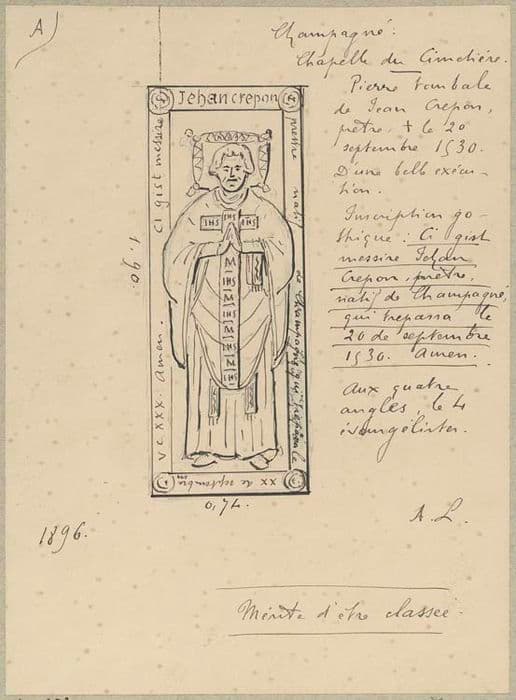 A
Champagné.
Chapelle du Cimetière.
Pierre tombale
de Jean Crepon,
prêtre, † le 20
septembre 1530.
D'une belle exécu-
tion.
Inscription go-
thique : Ci gist
messire Jehan
Crepon, prêtre,
natif de Champagné,
qui trepassa le
20 de septembre
1530. Amen.
Aux quatre
angles, le 4
évangélistes.
A. L.
Ci gist messire
Jehan crepon
prestre natif de Champagné qui trepassa le
XX de septembre
VCXXX. Amen.
IHS IHS IHS
M
IHS
M
IHS
M
IHS
M
IHS
1,90.
0,74.
1896.
Mérite d'être classée.